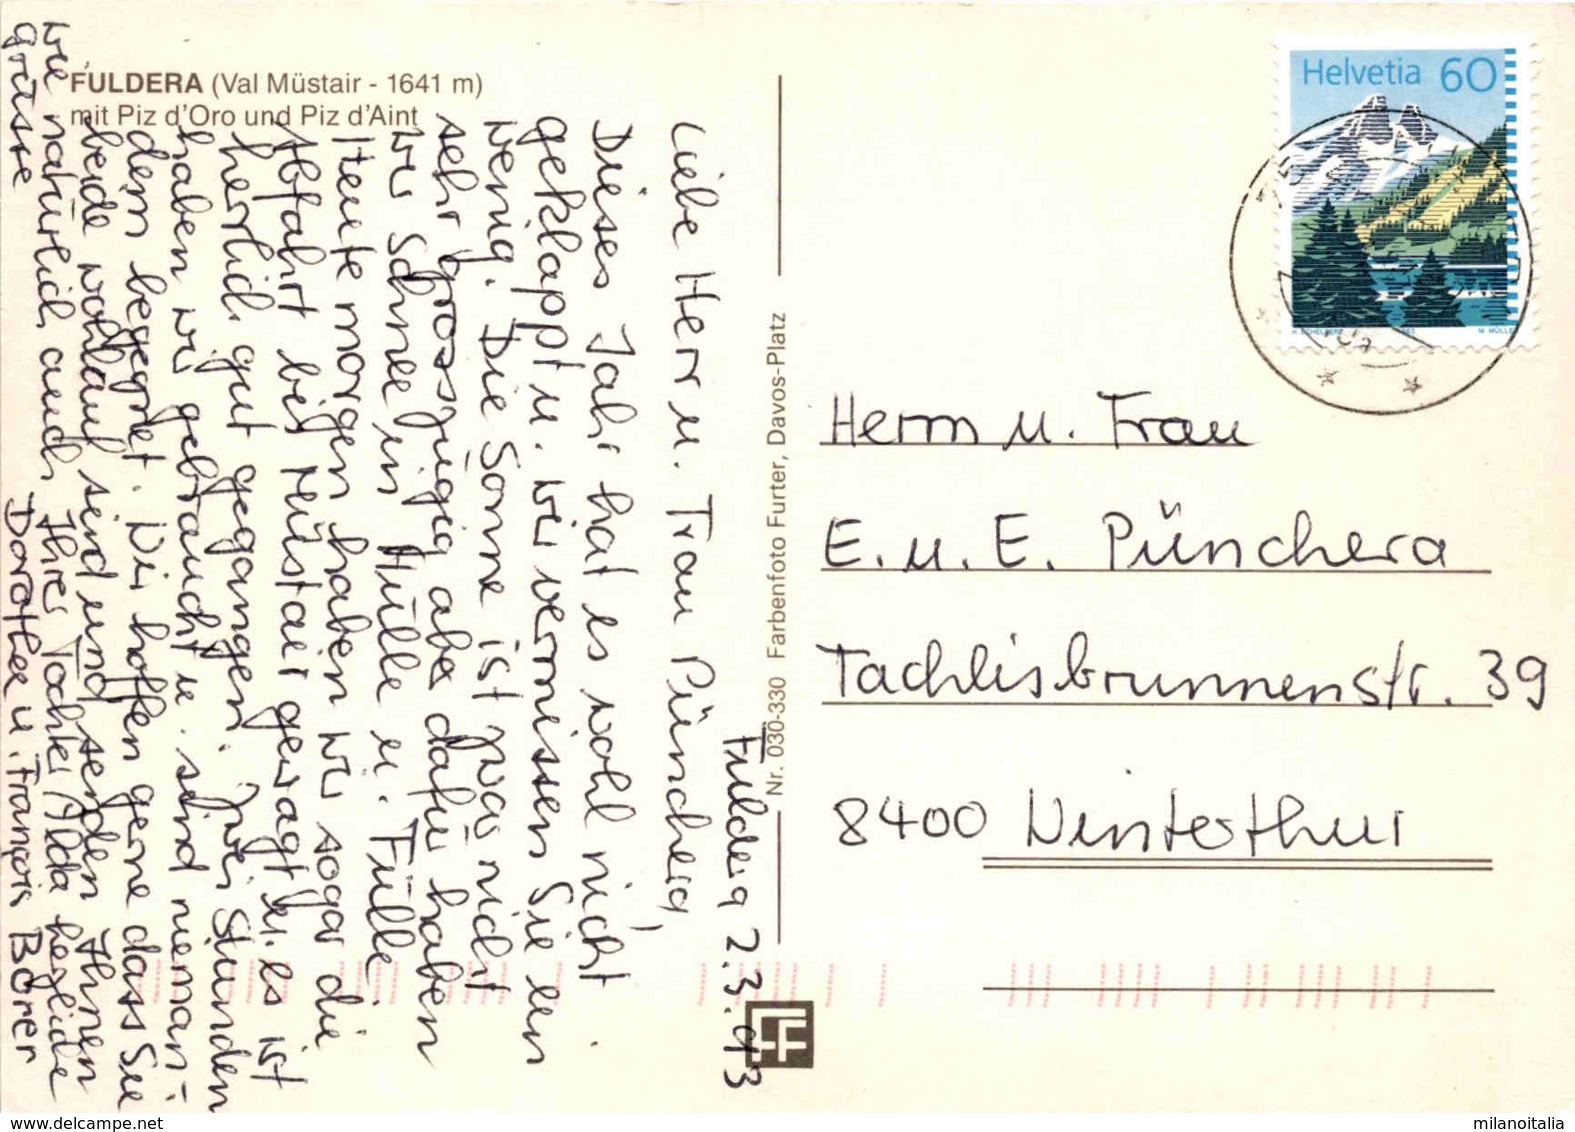 FULDERA (Val Müstair - 1641 m)
mit Piz d'Oro und Piz d'Aint
Fuldera 2.3.93
Liebe Herr u. Frau Pünchera,
Dieses Jahr hat es wohl nicht
geklappt u. wir vermissen Sie ein
wenig. Die Sonne ist zwar nicht
sehr grosszügig aber dafür haben
wir Schnee in Hülle u. Fülle.
Heute morgen haben wir sogar die
Abfahrt bis Müstair gewagt u. es ist
herrlich gut gegangen. Zwei Stunden
haben wir gebraucht u. sind nieman-
dem begegnet. Wir hoffen gerne dass Sie
beide wohlauf sind und senden Ihnen
wie natürlich auch Ihrer Tochter Alda herzliche
Grüsse
Dorothee u. François Borer
Nr. 030-330 Farbenfoto Furter, Davos-Platz
FF
Helvetia 60
M. MÜLLER
Herrn u. Frau
E. u. E. Pünchera
Tachlisbrunnenstr. 39
8400 Winterthur
milanoitalia